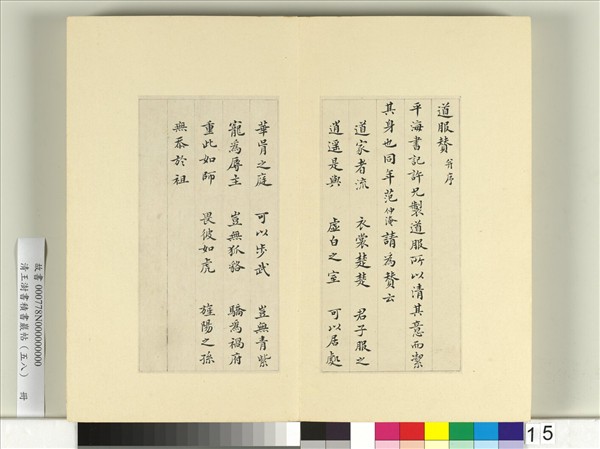 道服賛 并序
平海書記許兄製道服所以清其意而潔
其身也同年范仲淹請為賛云
道家者流 衣裳楚楚 君子服之
逍遥是與 虛白之室 可以居處
華胥之庭 可以步武 豈無青紫
寵為辱主 豈無狐貉 驕為禍府
重此如師 畏彼如虎 旌陽之孫
無忝於祖
故書 000778N000000000
清王澍書積書巖帖（五八） 冊
15